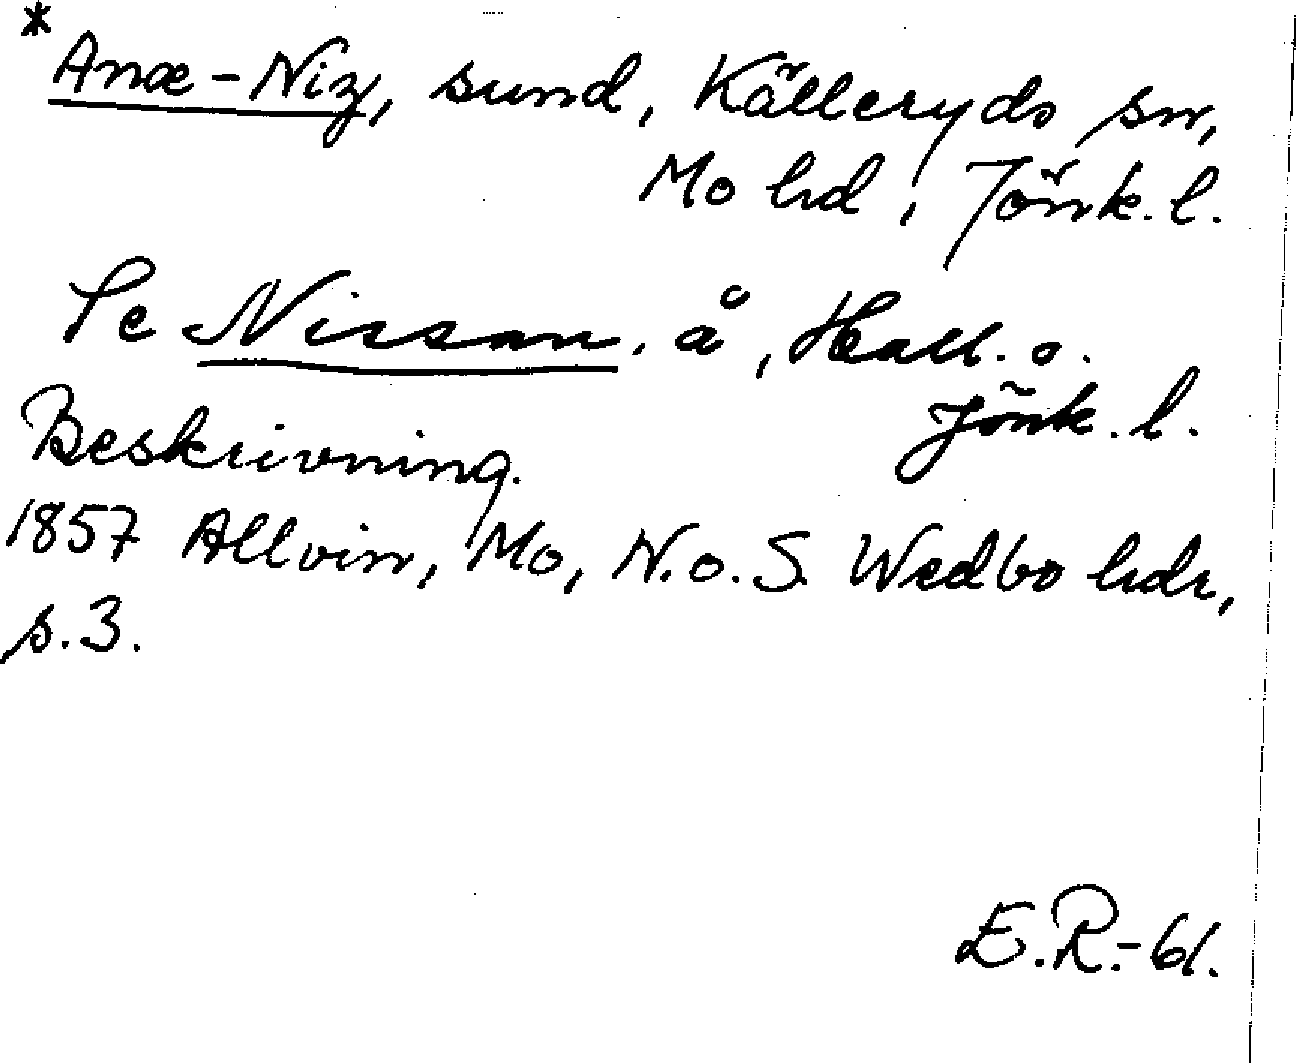 *
Anæ-Niz, sund, Källeryds sn,
Mo hd, Jönk. l.
Se Nissan, å, Hall. o.
Jönk. l.
Beskrivning.
1857 Allvin, Mo, N. o. S. Wedbo hdr,
s. 3.
E.R.-61.